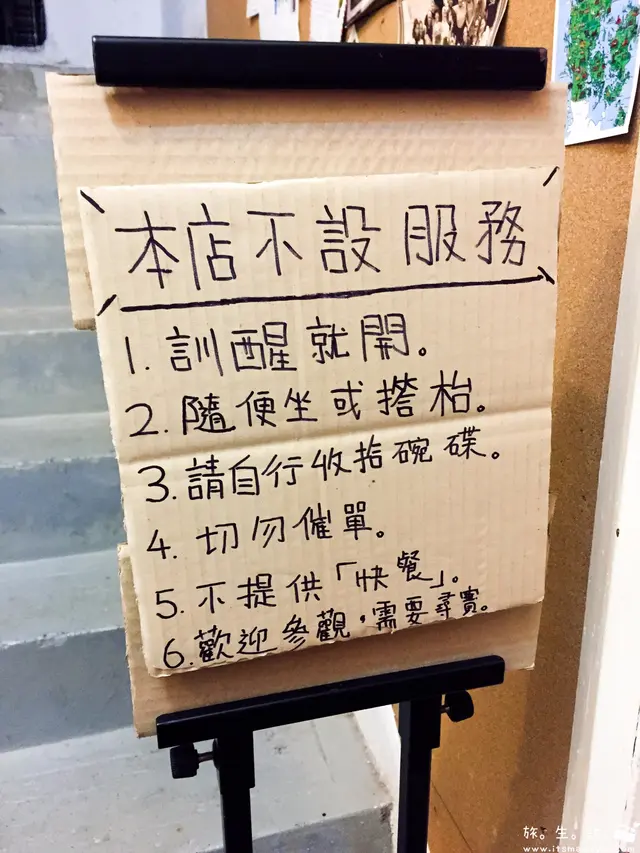 本店不設服務
1. 訓醒就開。
2. 隨便坐或搭枱。
3. 請自行收拾碗碟。
4. 切勿催單。
5. 不提供「快餐」。
6. 歡迎參觀，需要尋寶。
旅。生。